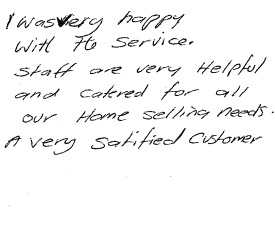 I was very happy
With the Service.
Staff are very Helpful
and catered for all
our Home selling needs.
A very Satified Customer